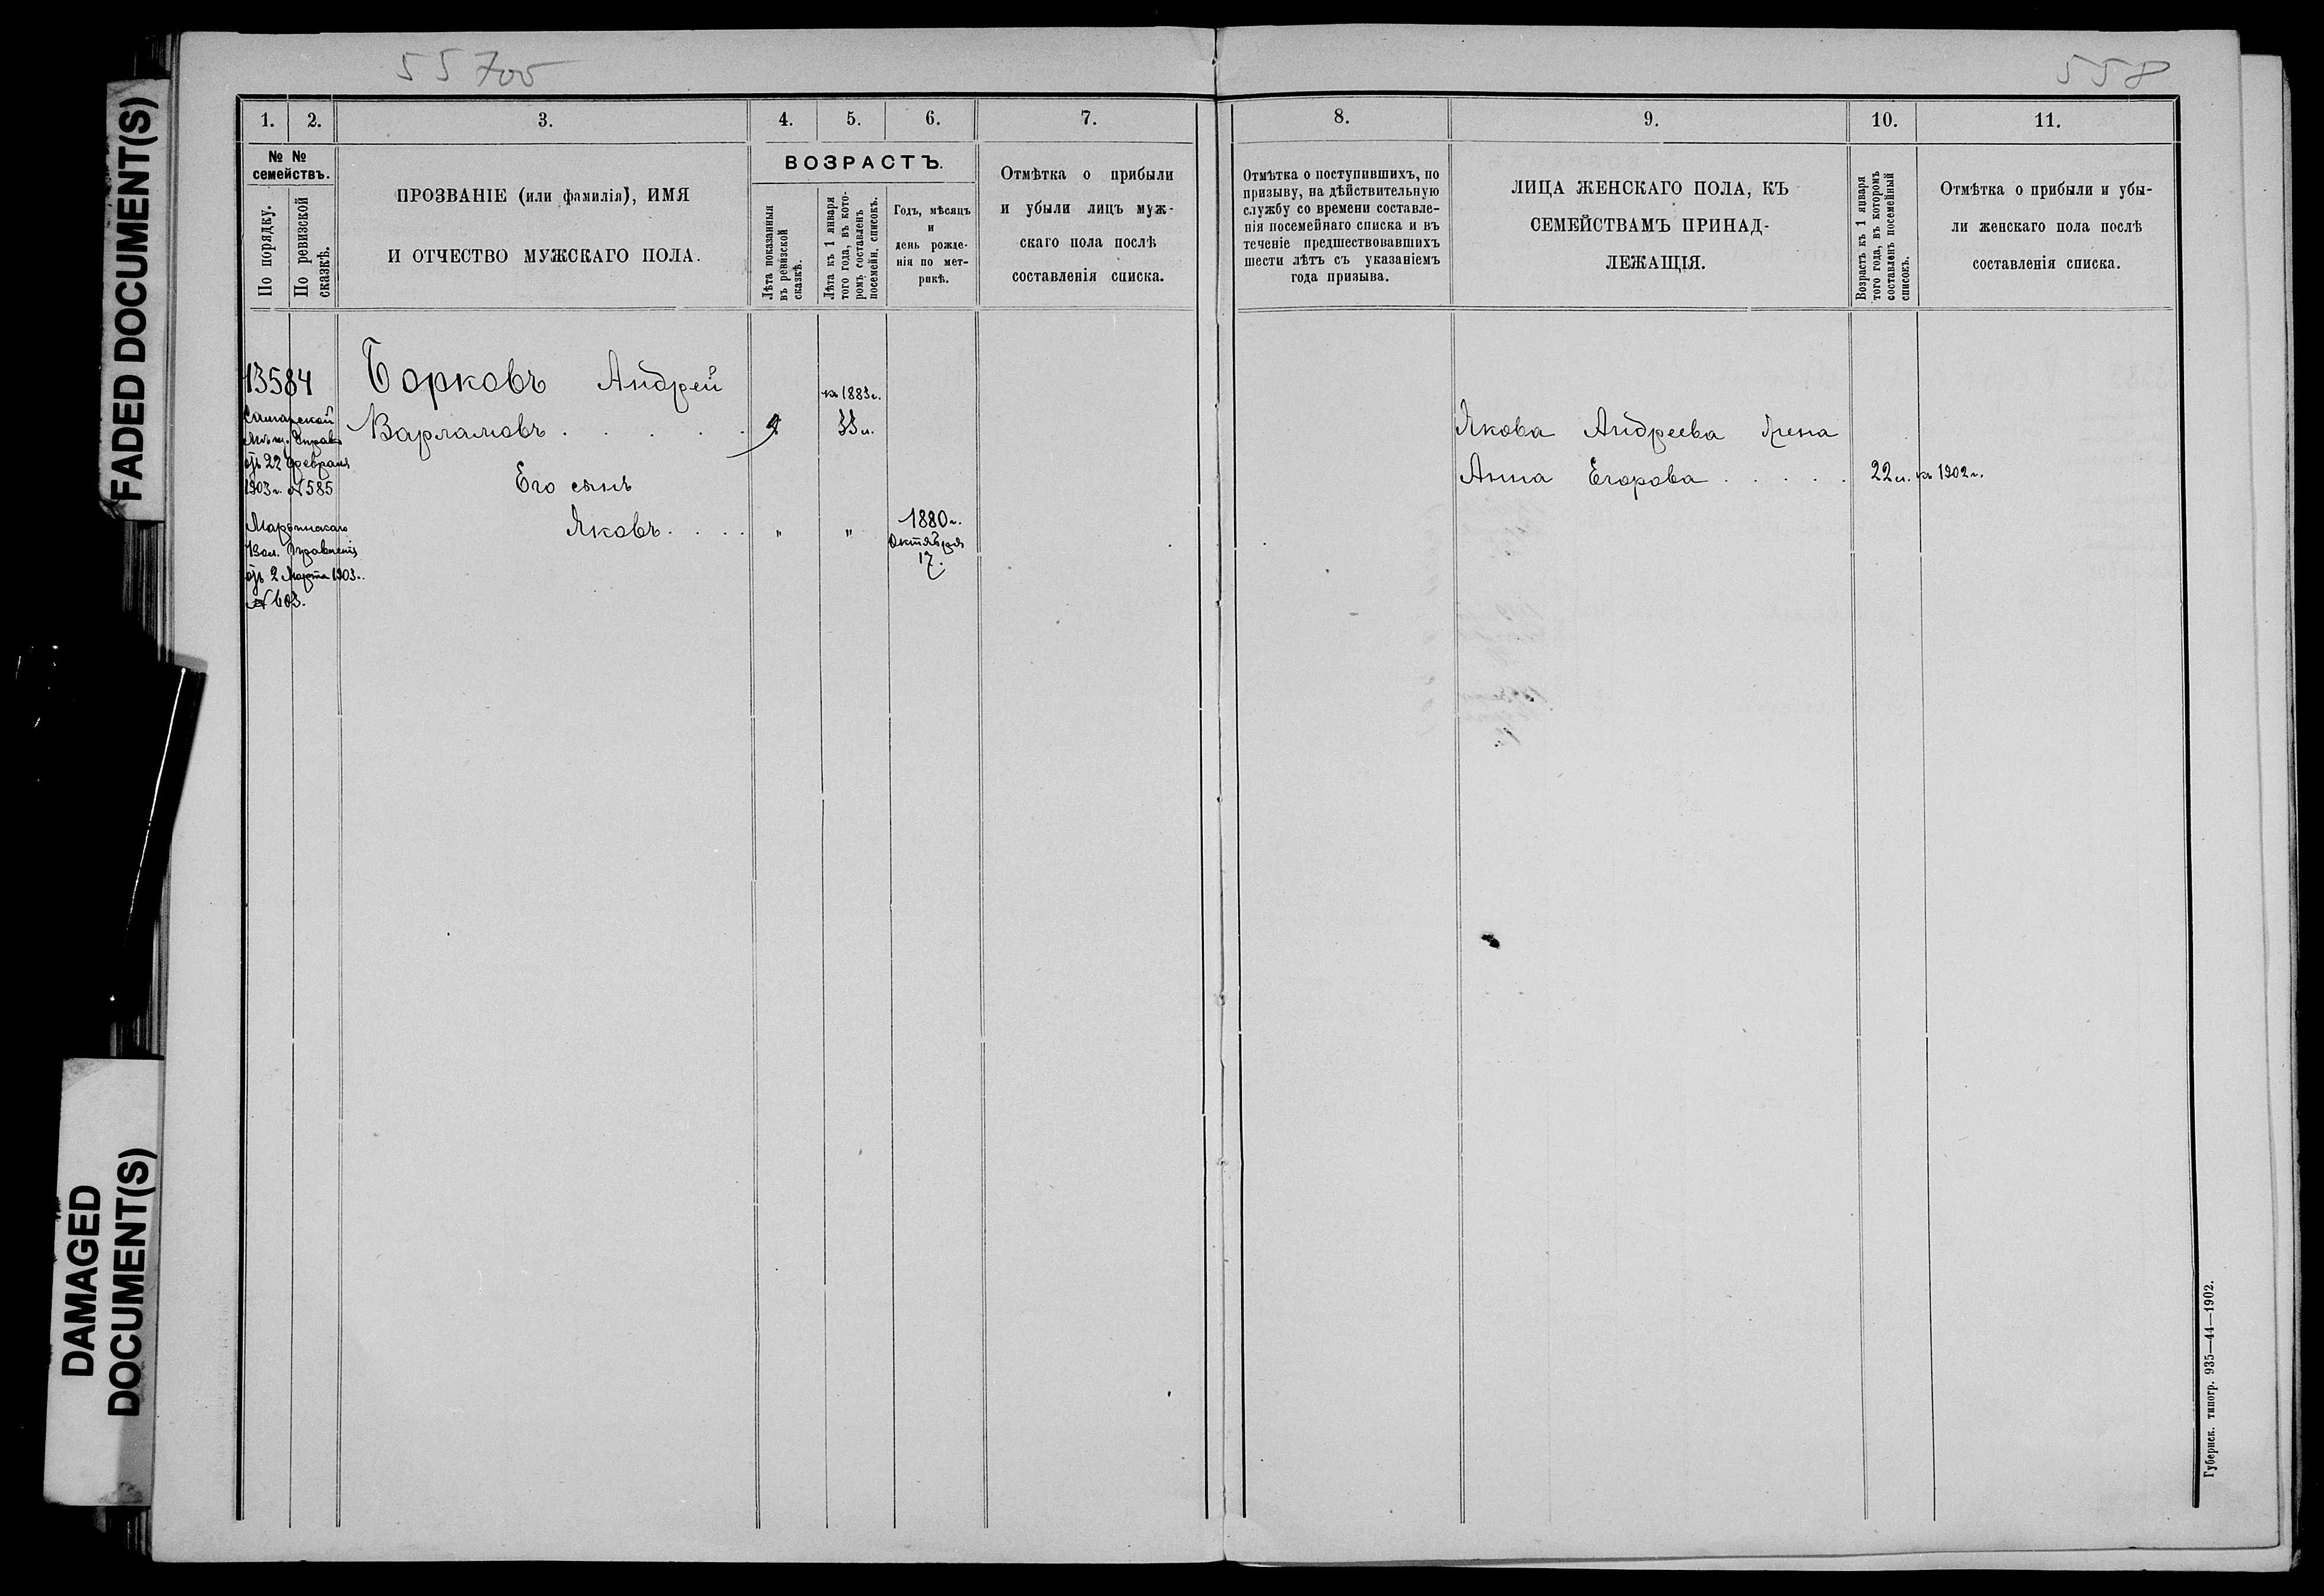 55700
558
FADED DOCUMENT(S)
DAMAGED
DOCUMENT(S)
1. 2. 3. 4. 5. 6. 7.
№ №
семействъ.
По порядку.
По ревизской
сказкѣ.
ПРОЗВАНІЕ (или фамилія), ИМЯ
И ОТЧЕСТВО МУЖСКАГО ПОЛА.
ВОЗРАСТЪ.
Лѣта показанныя
въ ревизской
сказкѣ.
Лѣта къ 1 января
того года, въ кото-
ромъ составленъ
посемейн. списокъ.
Годъ, мѣсяцъ
и
день рожде-
нія по мет-
рикѣ.
Отмѣтка о прибыли
и убыли лицъ муж-
скаго пола послѣ
составленія списка.
13584
Самарской
Мѣщ. Управы
отъ 22 февраля
1903 г. № 585
Марьинскаго
Вол. Правленія
отъ 2 Марта 1903 г.
№ 603.
Борковъ Андрей
Варламовъ . . . . .
къ 1883 г.
33 л.
Его сынъ
Яковъ . . . . " "
1880 г.
Октября
17.
8. 9. 10. 11.
Отмѣтка о поступившихъ, по
призыву, на дѣйствительную
службу со времени составле-
нія посемейнаго списка и въ
теченіе предшествовавшихъ
шести лѣтъ съ указаніемъ
года призыва.
ЛИЦА ЖЕНСКАГО ПОЛА, КЪ
СЕМЕЙСТВАМЪ ПРИНАД-
ЛЕЖАЩІЯ.
Возрастъ къ 1 января
того года, въ которомъ
составленъ посемейный
списокъ.
Отмѣтка о прибыли и убы-
ли женскаго пола послѣ
составленія списка.
Якова Андреева жена
Анна Егорова . . . . . 22 л. къ 1902 г.
Губернск. типогр. 935—44—1902.